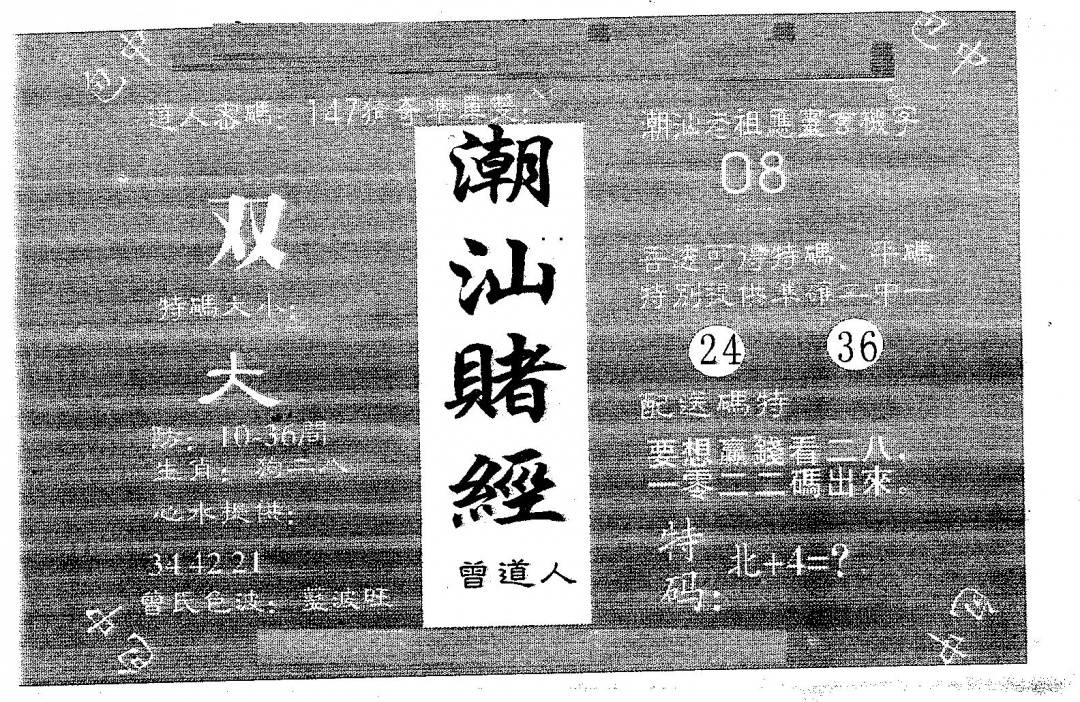 道人密碼：147猛奇準重獎：
双
特碼大小：
大
防：10-36間
生肖：狗二八
心水提供：
34.42.21
曾氏色波：藍波旺
潮汕賭經
曾道人
潮汕老祖應靈會機字
08
吾送可得特碼、平碼
特别提供準確二中一
24 36
配送碼特
要想贏錢看二八.
一零二二碼出來.
特码：
北+4=?